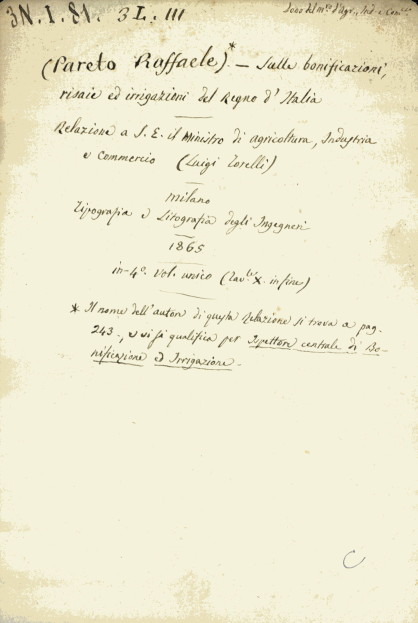 3N. I. 81. 3 L. III
Dono del M.ro d'Agr., Ind. e Com.
(Pareto Raffaele)* — Sulle bonificazioni,
risaie ed irrigazioni del Regno d'Italia
Relazione a S. E. il Ministro di agricoltura, Industria
e Commercio (Luigi Torelli)
Milano
Tipografia e Litografia degli Ingegneri
1865
in-4º. Vol. unico (Tav.le X. in fine)
* Il nome dell'autore di questa Relazione si trova a pag.
243., e vi si qualifica per Ispettore centrale di Bo-
nificazione ed Irrigazione.
C